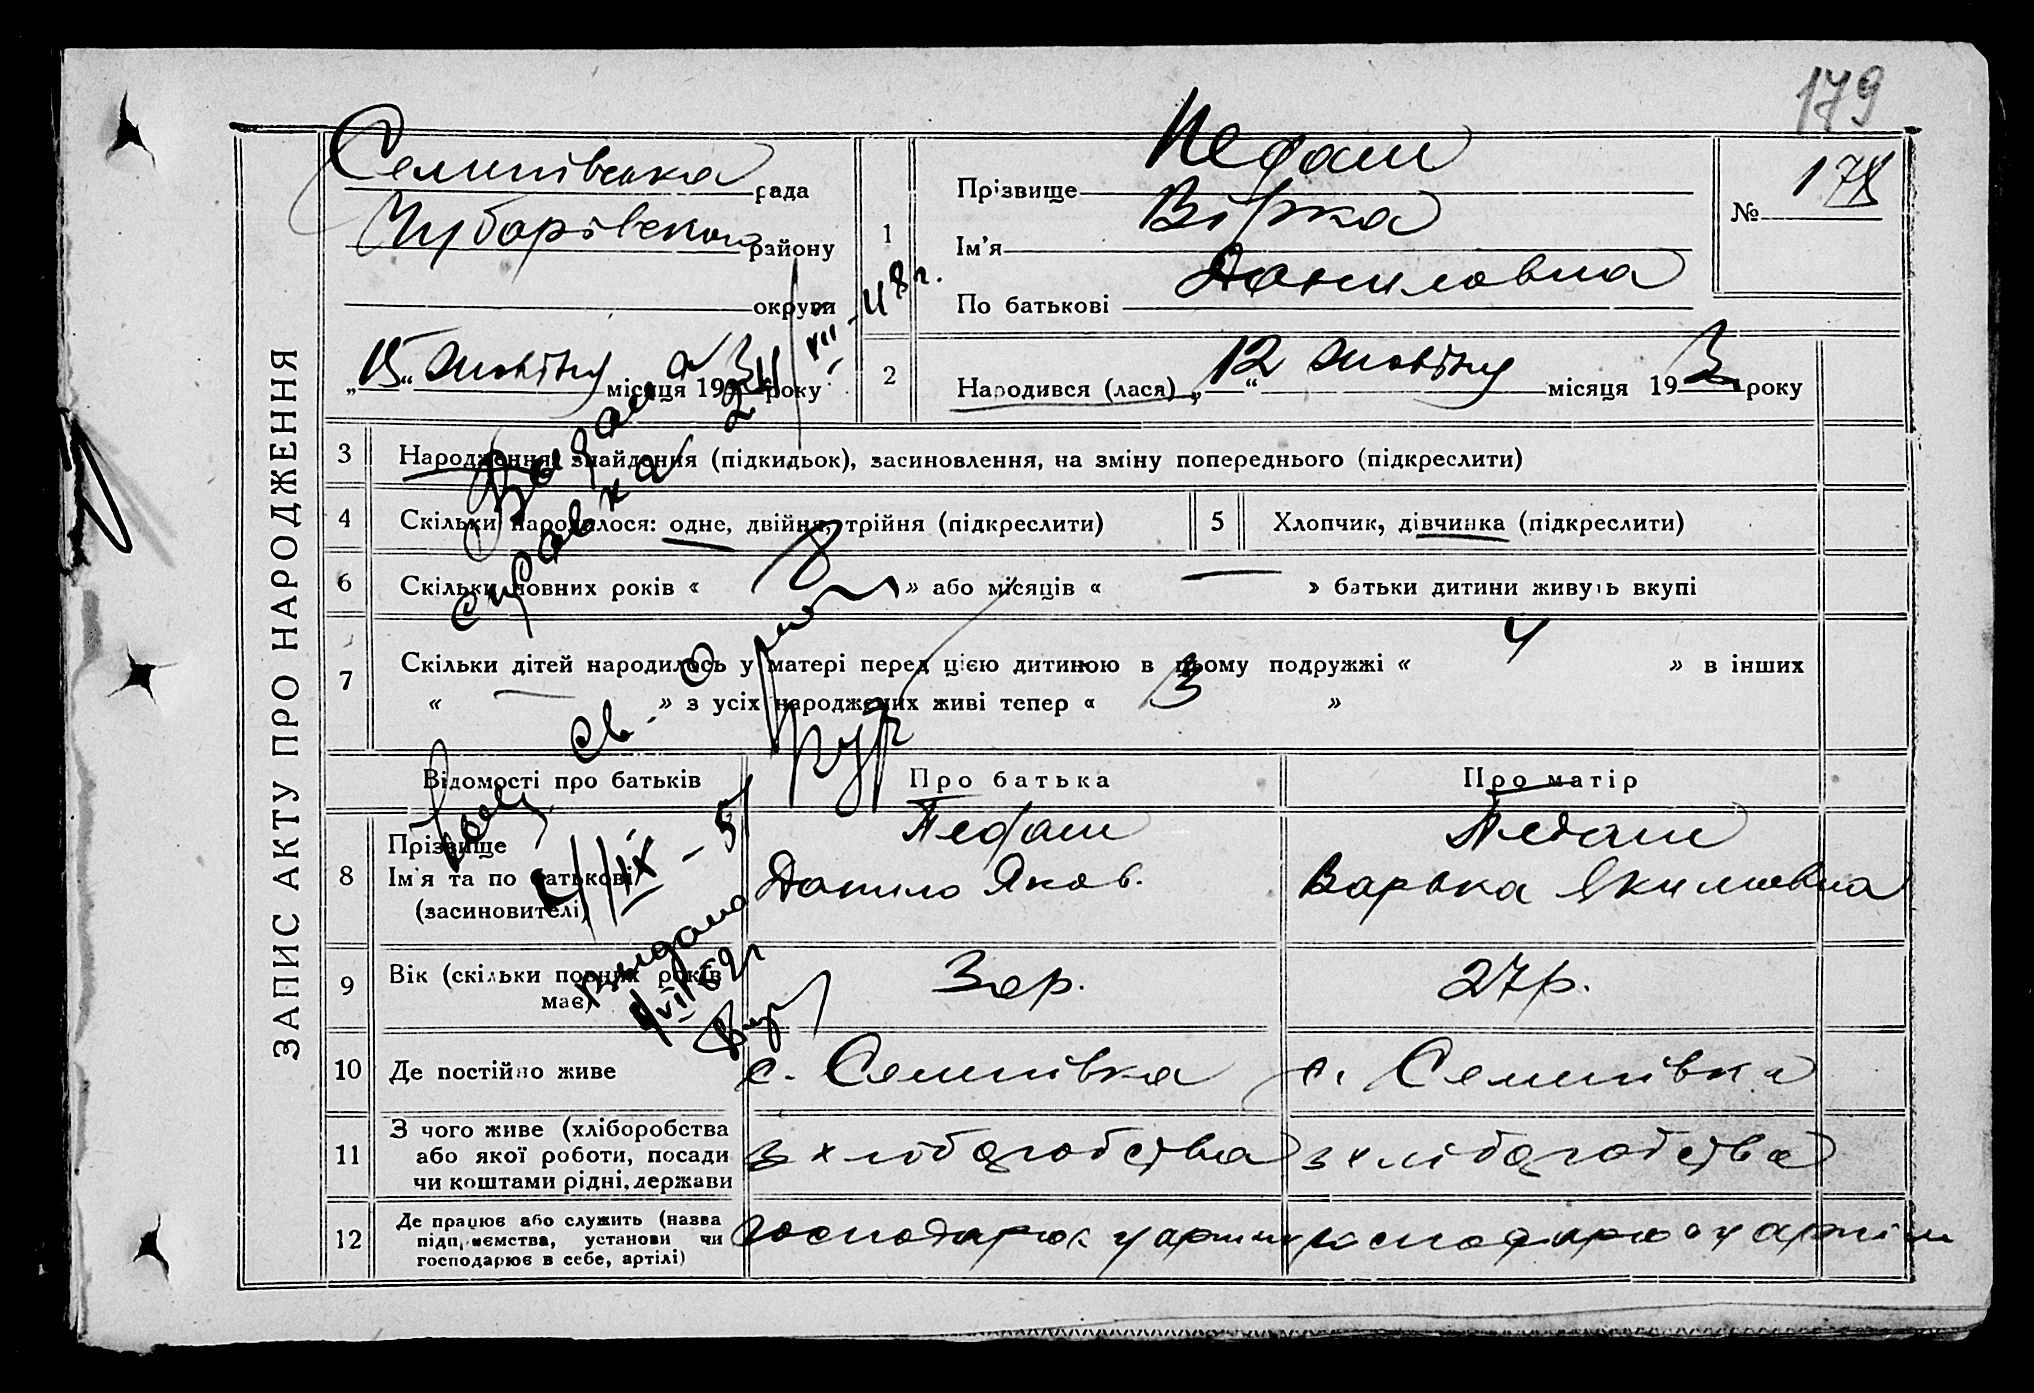 179
ЗАПИС АКТУ ПРО НАРОДЖЕННЯ
Семипівська рада
Чубарівського району
округи
„15“ жовтня місяця 193 року
1
Прізвище Педаш
Ім'я Вірка
По батькові Даниловна
№ 178
2
Народився (лася) „12“ жовтня місяця 193 року
3 Народження, знайдення (підкидьок), засиновлення, на зміну попереднього (підкреслити)
4 Скільки народилося: одне, двійня, трійня (підкреслити)
5 Хлопчик, дівчинка (підкреслити)
6 Скільки повних років « 8 » або місяців « — » батьки дитини живуть вкупі
7 Скільки дітей народилось у матері перед цією дитиною в цьому подружжі « 4 » в інших
« — » з усіх народжених живі тепер « 3 »
Відомості про батьків
Про батька
Про матір
8 Прізвище
Ім'я та по батькові
(засиновителі)
Педаш
Данило Яков.
Педаш
Варька Якимовна
9 Вік (скільки повних років
має)
30р.
27р.
10 Де постійно живе
с. Семипівка
с. Семипівка
11 З чого живе (хліборобства
або якої роботи, посади
чи коштами рідні, держави
з хліборобства
з хліборобства
12 Де працює або служить (назва
підприємства, установи чи
господарює в себе, артілі)
господарює у артілі
господарює у артілі
справка
видано